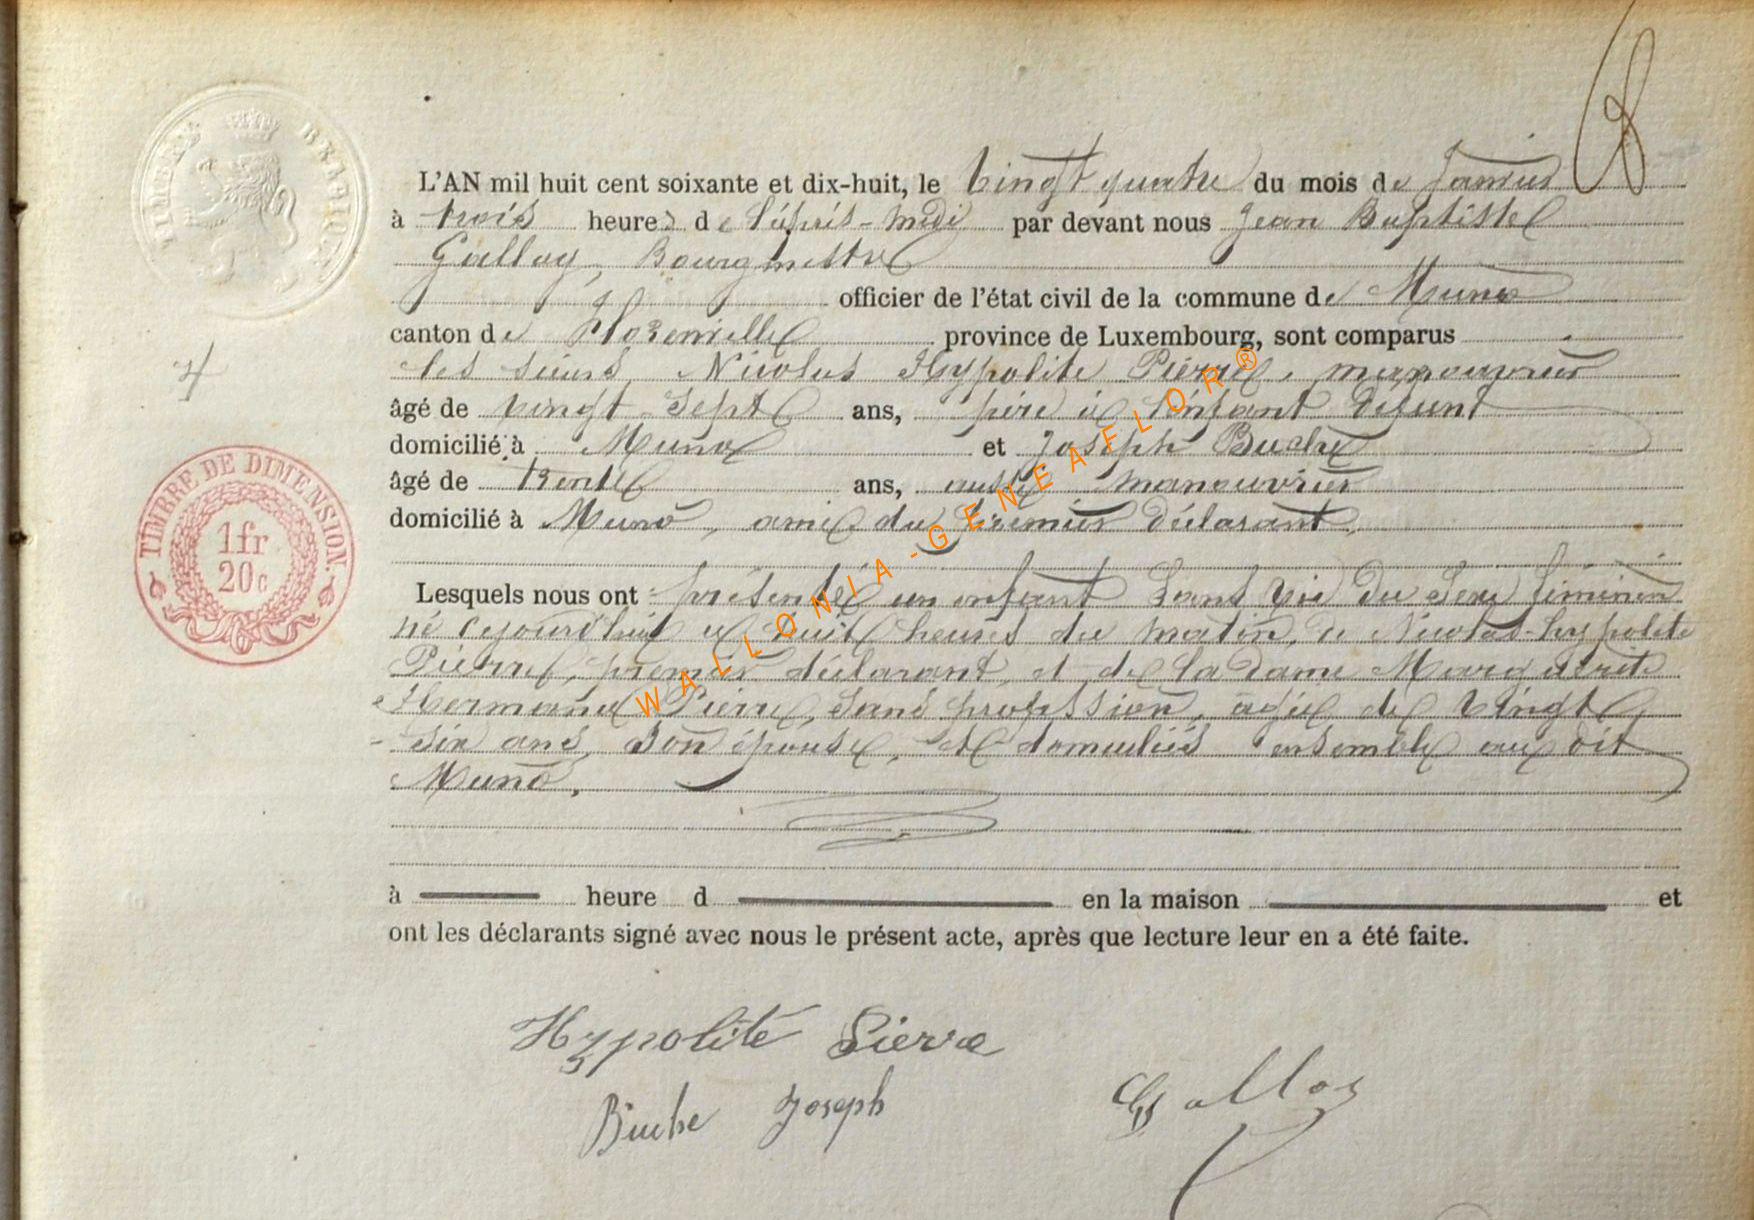 L'AN mil huit cent soixante et dix-huit, le vingt quatre du mois de Janvier
à trois heures de l'après-midi par devant nous Jean Baptiste
Galloy, Bourgmestre
officier de l'état civil de la commune de Muno
canton de Florenville province de Luxembourg, sont comparus
les sieurs Nicolas Hypolite Pierre, manouvrier
âgé de vingt sept ans, père de l'enfant défunt
domicilié à Muno et Joseph Buche
âgé de trente ans, aussi manouvrier
domicilié à Muno, ami du premier déclarant,
Lesquels nous ont présenté un enfant sans vie du sexe féminin
né cejourd'hui à huit heures du matin, de Nicolas-hypolite
Pierre, premier déclarant, et de la dame Marguerite
Hermand Pierre, sans profession, âgée de vingt
six ans, son épouse, domiciliés ensemble au dit
Muno.
à heure d en la maison et
ont les déclarants signé avec nous le présent acte, après que lecture leur en a été faite.
Hypolité Pierre
Buche Joseph
Galloy
TIMBRE DE DIMENSION.
1fr
20c
WALLONIA-GENEAFLOR®